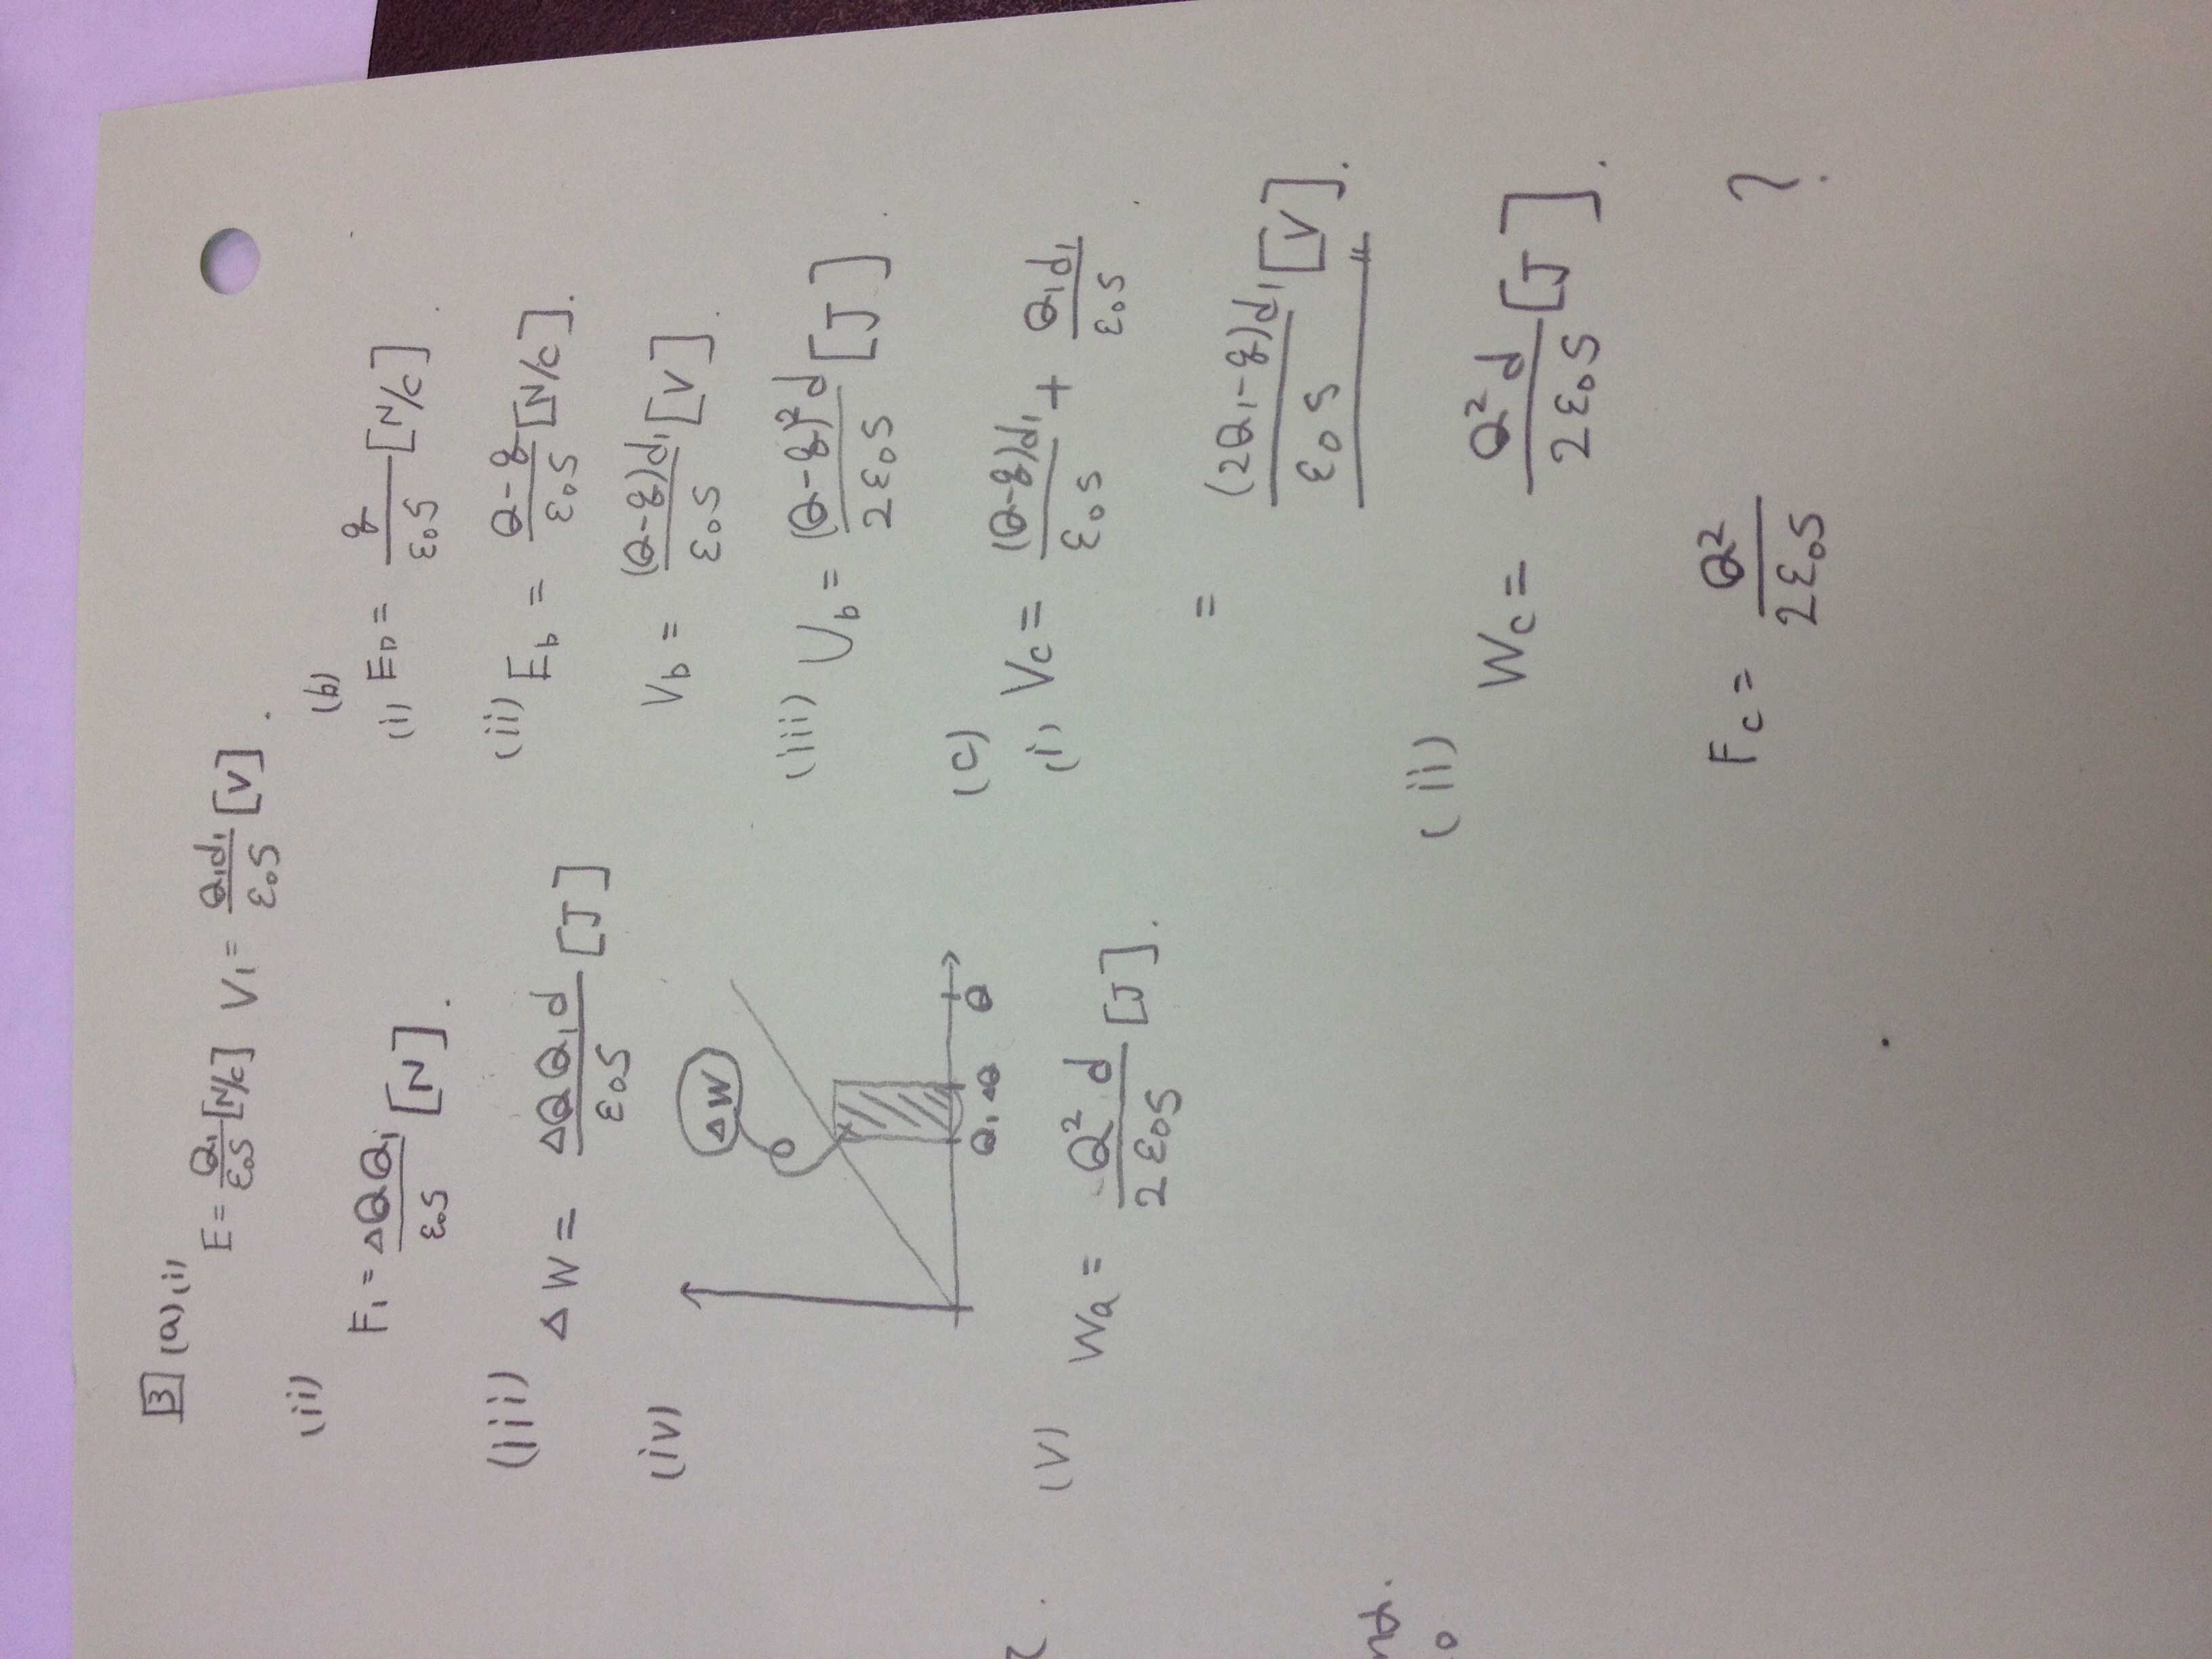 3 (a) (i)
E = Q₁/ε₀S [N/C] V₁ = Q₁d₁/ε₀S [V].
(ii)
F₁ = ΔQQ₁/ε₀S [N].
(iii)
ΔW = ΔQQ₁d/ε₀S [J]
(iv)
ΔW
Q₁ ΔQ Q
(v)
Wa = Q²d/2ε₀S [J].
(b)
(i) E_D = q/ε₀S [N/C].
(ii) E_b = Q-q/ε₀S [N/C].
V_b = (Q-q)d₁/ε₀S [V].
(iii) U_b = (Q-q)²d/2ε₀S [J].
(c)
(i) Vc = (Q-q)d₁/ε₀S + Q₁d₁/ε₀S.
= (2Q₁-q)d₁/ε₀S [V].
(ii)
Wc = Q²d/2ε₀S [J].
Fc = Q²/2ε₀S ?